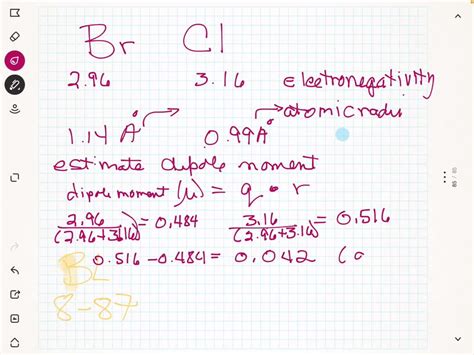 Br Cl
2.96 3.16 electronegativity
1.14 Å 0.99Å → atomic radus
estimate dipole moment
dipole moment (μ) = q • r
2.96/(2.96+3.16) = 0.484 3.16/(2.96+3.16) = 0.516
0.516 - 0.484 = 0.042 (
8-87